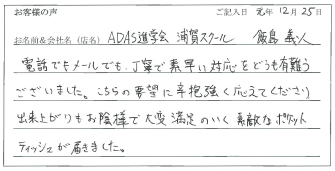 お客様の声 ご記入日 元年 12月 25日
お名前&会社名(店名) ADAS進学会 浦賀スクール 飯島 義人
電話でもメールでも、丁寧で素早い対応をどうも有難う
ございました。こちらの要望に辛抱強く応えてくださり
出来上がりもお陰様で大変満足のいく素敵なポケット
ティッシュが届きました。